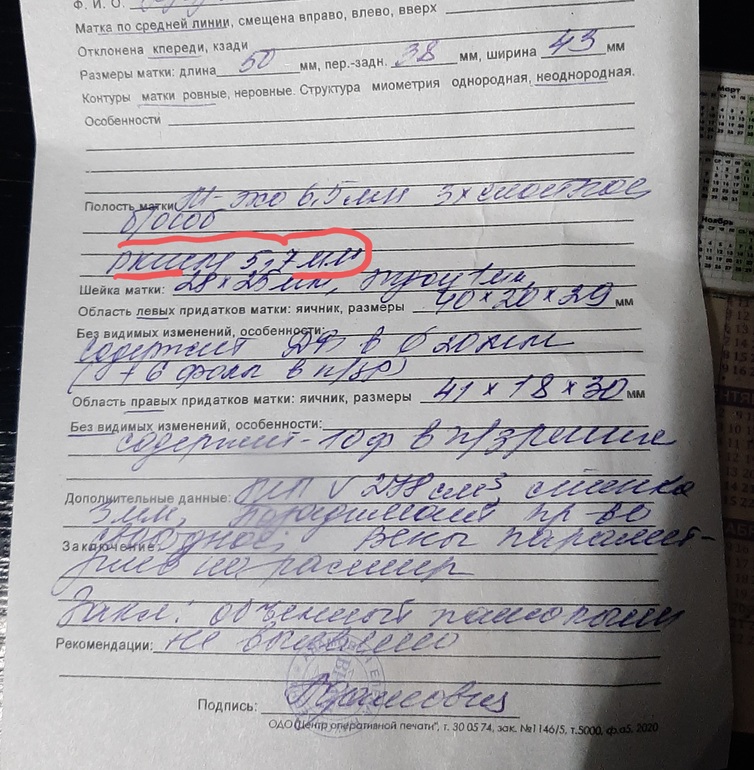 Ф. И. О.
Матка по средней линии, смещена вправо, влево, вверх
Отклонена кпереди, кзади
Размеры матки: длина 50 мм, пер.-задн. 38 мм, ширина 43 мм
Контуры матки ровные, неровные. Структура миометрия однородная, неоднородная.
Особенности
Полость матки: М-эхо 6,5 мм 3х слойное
5,7 мм
Шейка матки: 28 x 25 мм, 1 мм,
Область левых придатков матки: яичник, размеры 40 x 20 x 29 мм
Без видимых изменений, особенности:
содержит ДФ в 20 мм
(+ 6 фолл в п/зр)
Область правых придатков матки: яичник, размеры 41 x 18 x 30 мм
Без видимых изменений, особенности:
содержит - 10 ф в п/зрения
Дополнительные данные: МП V 278 см³, стенка
3 мм, пр-во
Заключение: свободно, Вены парамет-
риев не расшир
Закл: объемный патологии
Рекомендации: не выявлено
Подпись:
ОДО "Центр оперативной печати", т. 30 05 74, зак. №1146/5, т.5000, ф.а5. 2020
Март
Ноябрь